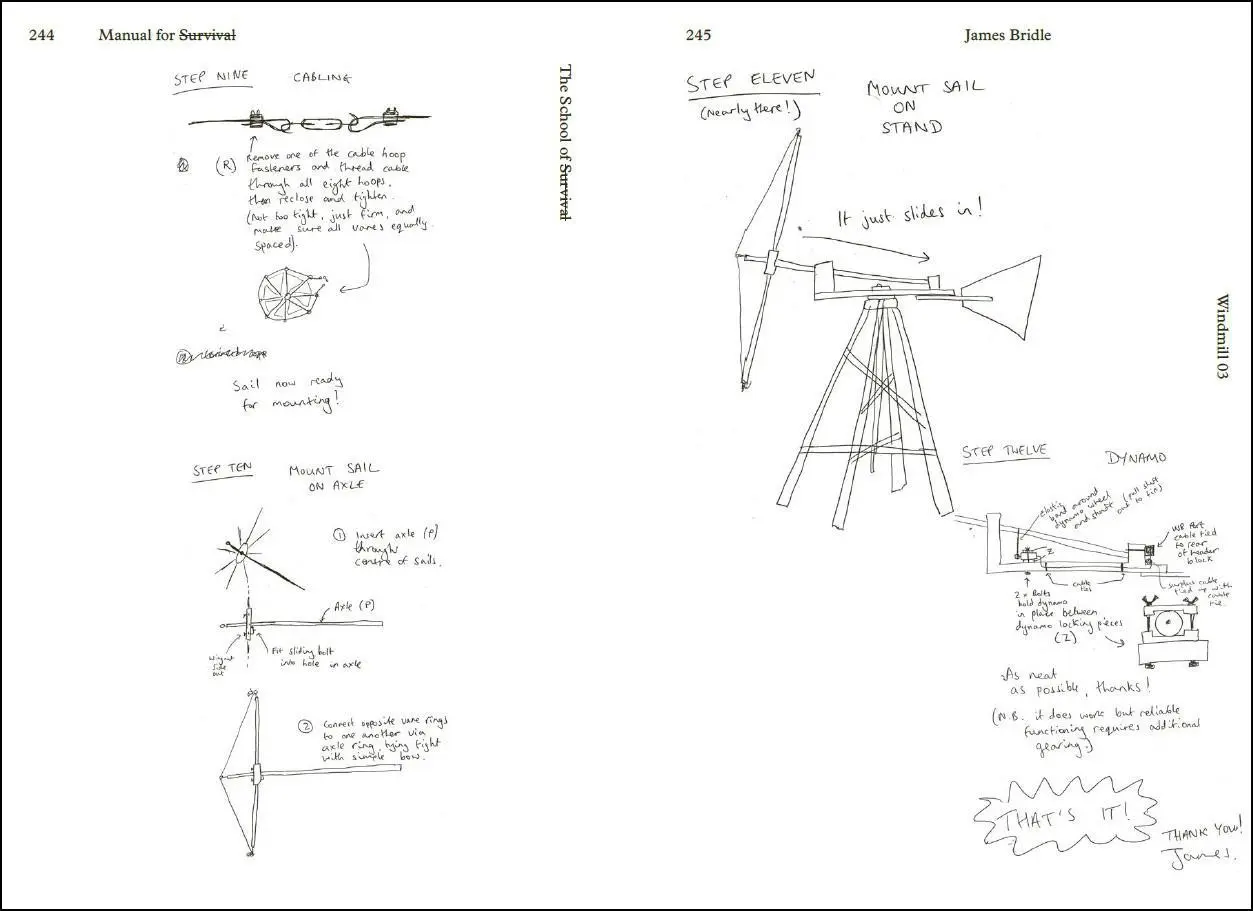 244
Manual for Survival
STEP NINE CABLING
(R) Remove one of the cable hoop
fasteners and thread cable
through all eight hoops.
then reclose and tighten.
(Not too tight, just firm, and
make sure all vanes equally
spaced).
Sail now ready
for mounting!
STEP TEN MOUNT SAIL
ON AXLE
1 Insert axle (P)
through
centre of sails.
Axle (P)
Wingnut
side
out
Fit sliding bolt
into hole in axle
2 Connect opposite vane rings
to one another via
axle ring, tying tight
with simple bow.
The School of Survival
245
James Bridle
STEP ELEVEN
(nearly there!)
MOUNT SAIL
ON
STAND
It just slides in!
Windmill 03
STEP TWELVE DYNAMO
elastic
band around
dynamo wheel
and shaft (pull shaft
out to fix)
Z
cable tied
to rear
of header
block
cable
ties
surplus cable
tied up with
cable
tie.
2 x Bolts
hold dynamo
in place between
dynamo locking pieces
(Z)
As neat
as possible, thanks!
(N.B. it does work but reliable
functioning requires additional
gearing.)
THAT'S IT!
THANK YOU!
James.